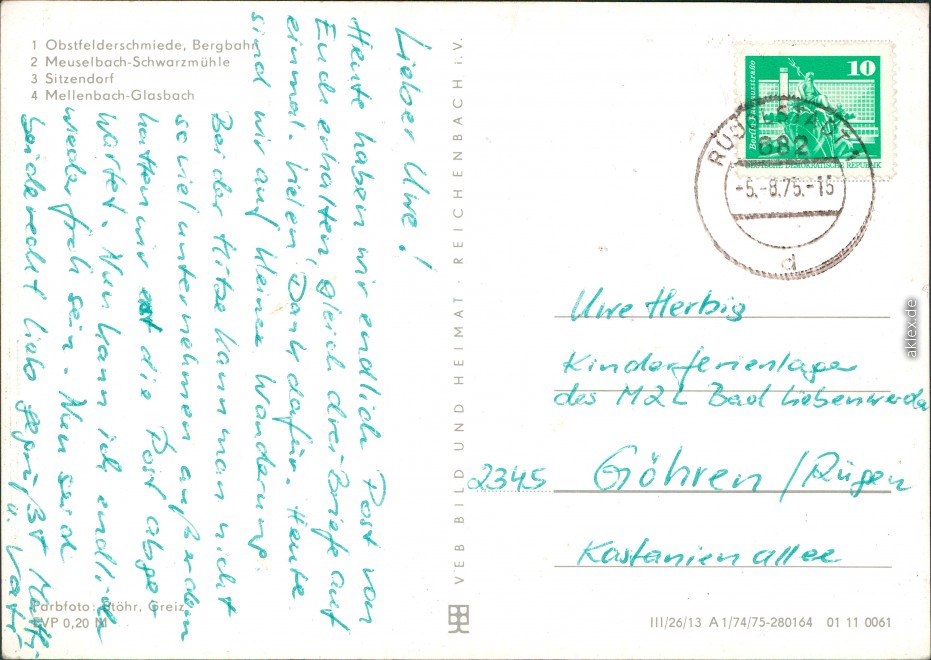 1 Obstfelderschmiede, Bergbahn
2 Meuselbach-Schwarzmühle
3 Sitzendorf
4 Mellenbach-Glasbach
Lieber Uwe!
Heute haben wir endlich Post von
Euch erhalten, gleich drei Briefe auf
einmal. Vielen Dank dafür. Heute
sind wir auf kleiner Wanderung.
Bei der Hitze kann man nicht
so viel unternehmen außerdem
hatten wir die Post abge-
wartet. Nun kann ich endlich
wieder froh sein. Nun seid
beide recht lieb gegrüßt Mutti
u. Vati
Farbfoto: Stöhr, Greiz
EVP 0,20 M
VEB BILD UND HEIMAT · REICHENBACH i.V.
10
Berlin
DEUTSCHE DEMOKRATISCHE REPUBLIK
RUDOLSTADT 1
682
-5.-8.75.-15
d
Uwe Herbig
Kinderferienlager
des MZL Bad Liebenwerda
2345 Göhren/Rügen
Kastanienallee
III/26/13 A 1/74/75-280164 01 11 0061
aklex.de